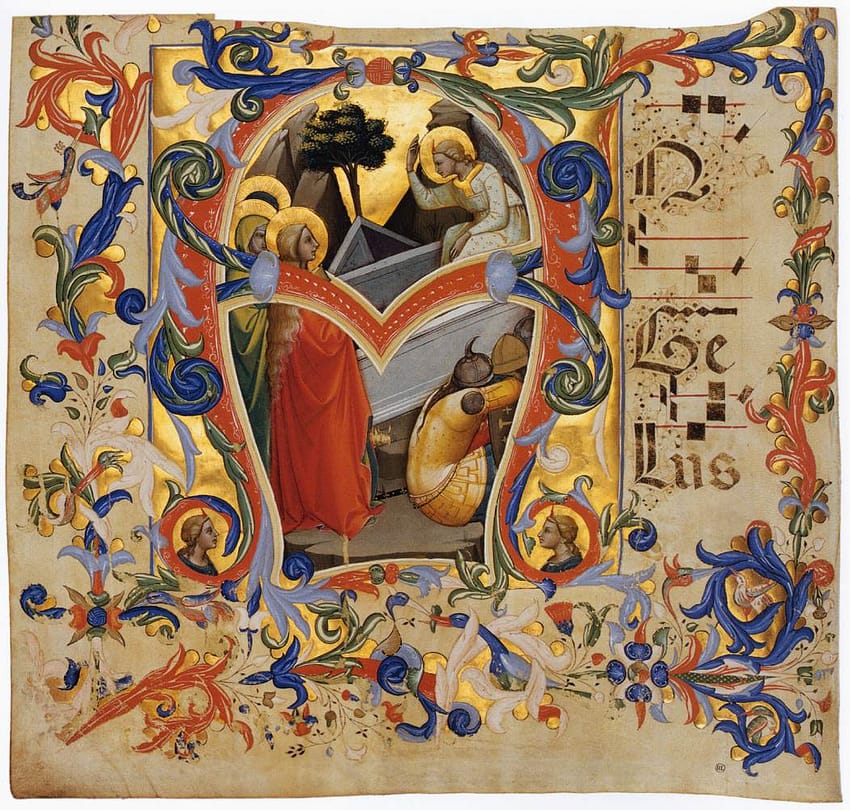 AN
Ge
lus